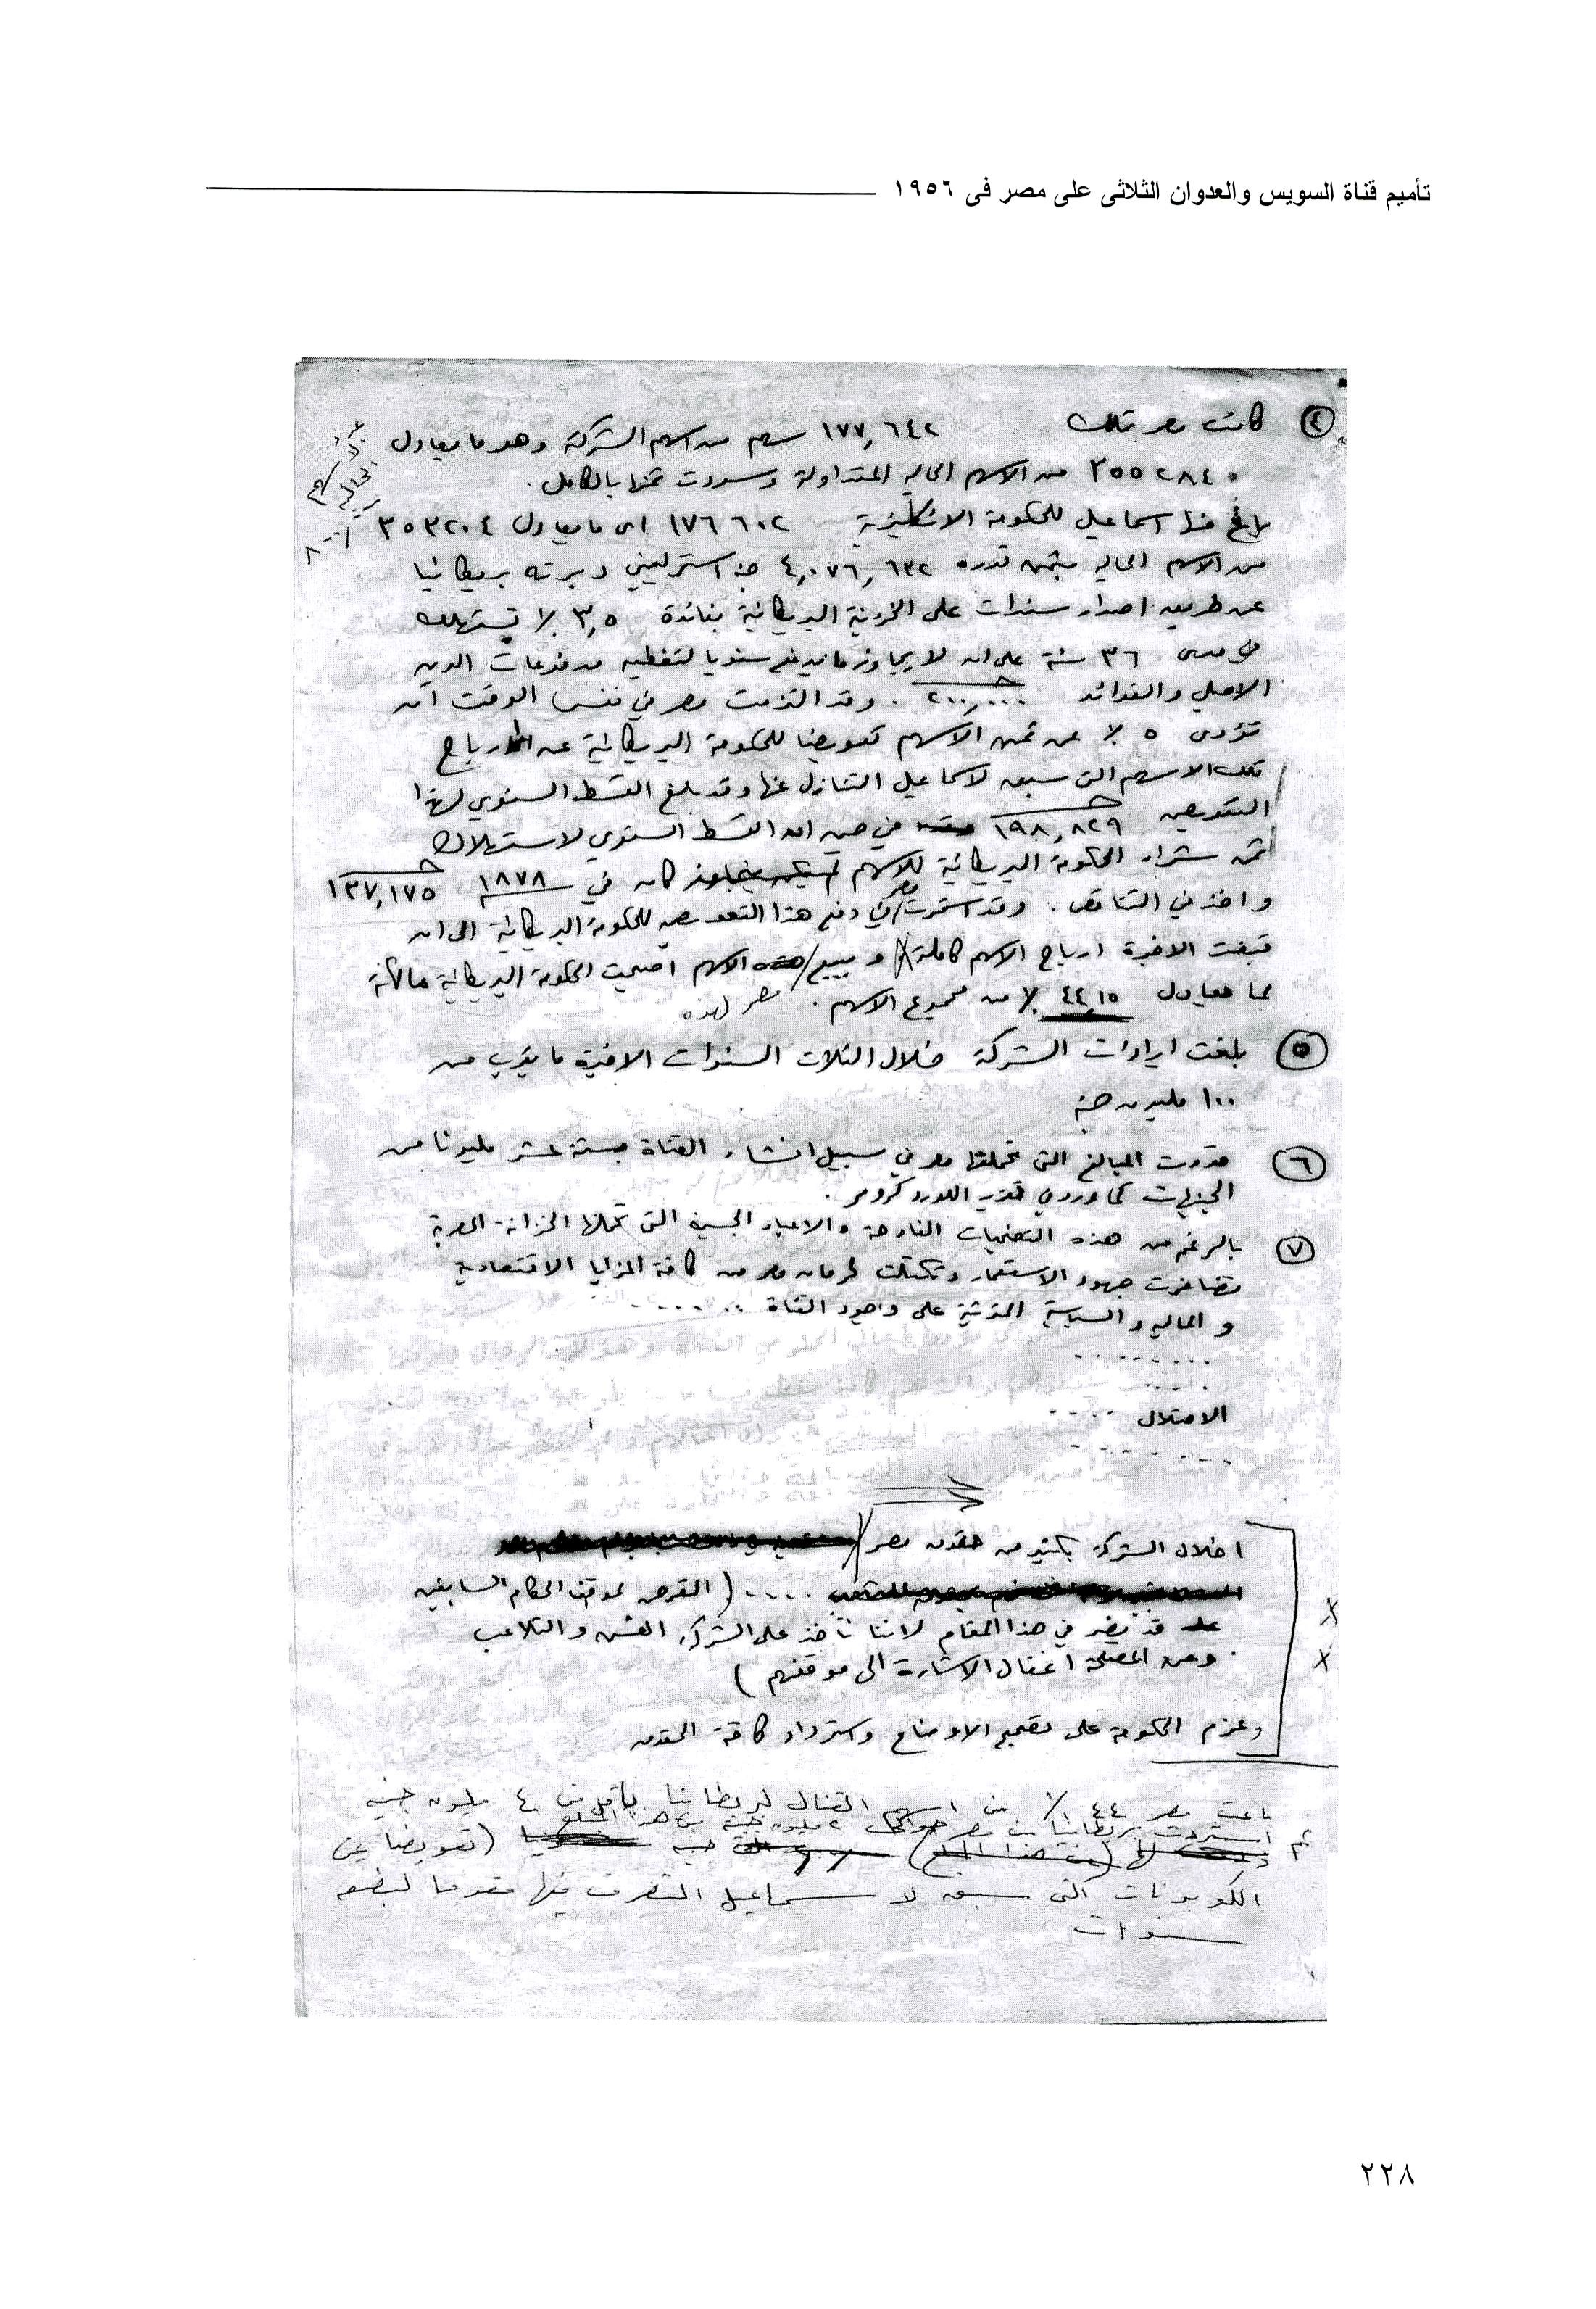 تأميم قناة السويس والعدوان الثلاثى على مصر فى ١٩٥٦
٤ كانت مصر تملك ١٧٧,٦٤٢ سهم من اسهم الشركة وهو ما يعادل
٣٥٥٢٨٤٠ من الاسهم الحاليه المتداولة وسددت ثمنها بالكامل.
باع منها اسماعيل للحكومة الانكليزية ١٧٦٦٠٢ اى ما يعادل ٣٥٣٢٠٤٠
من الاسهم الحاليه بثمن قدره ٤,٠٧٦,٦٢٢ جنيه استرلينى دبرته بريطانيا
عن طريق اصدار سندات على الخزينة البريطانية بفائدة ٣,٥ ٪ تستهلك
فى مدى ٣٦ سنة على ان لا يجاوز ما يدفع سنويا لتغطيه مدفوعات الدين
الاصلي والفوائد ٢٠٠,٠٠٠ . وقد التزمت مصر في نفس الوقت ان
تؤدى ٥ ٪ عن ثمن الاسهم تعويضا للحكومة البريطانية عن ارباح
تلك الاسهم التى سبق لاسماعيل التنازل عنها وقد بلغ القسط السنوي لهذا
التعويض ١٩٨,٨٢٩ في حين ان القسط السنوي لاستهلاك
ثمن شراء الحكومة البريطانية للاسهم كان في ١٨٧٨ ١٣٧,١٧٥
واخذ في التناقص . وقد استمرت مصر في دفع هذا التعويض للحكومة البريطانية الى ان
قبضت الاخيرة ارباح الاسهم كاملة وببيع مصر لهذه الاسهم اصبحت الحكومة البريطانية مالكة
لما يعادل ٤٤,١٥ ٪ من مجموع الاسهم .
٥ بلغت ايرادات الشركة خلال الثلاث السنوات الاخيرة ما يقرب من
١٠٠ مليون جنيه
٦ قدرت المبالغ التى تحملتها مصر في سبيل انشاء القناة بستة عشر مليونا من
الجنيهات كما ورد في تقدير اللورد كرومر .
٧ بالرغم من هذه التضحيات الفادحة والاعباء الجسيمة التى تحملتها الخزانة المصرية
تضافرت جهود الاستعمار وتكتلت لحرمان مصر من كافة المزايا الاقتصادية
و الماليه والسياسية المترتبة على وجود القناة ......
........
....
الاحتلال ....
........
اخلال الشركة بكثير من حقوق مصر
.... ( التعرض لموقف الحكام السابقين
قد يضر في هذا المقام لاننا نأخذ على الشركة الغش والتلاعب
ومن المصلحة اغفال الاشارة الى موقفهم )
وعزم الحكومة على تصحيح الاوضاع واسترداد كافة الحقوق
باعت مصر ٤٤ ٪ من اسهم القنال لبريطانيا بأقل من ٤ مليون جنيه
ثم استردت بريطانيا من مصر حوالى ٢ مليون جنيه من هذا المبلغ
(تعويضا عن
الكوبونات التى سبق لاسماعيل التصرف فيها مقدما لبضع
سنوات
٢٢٨